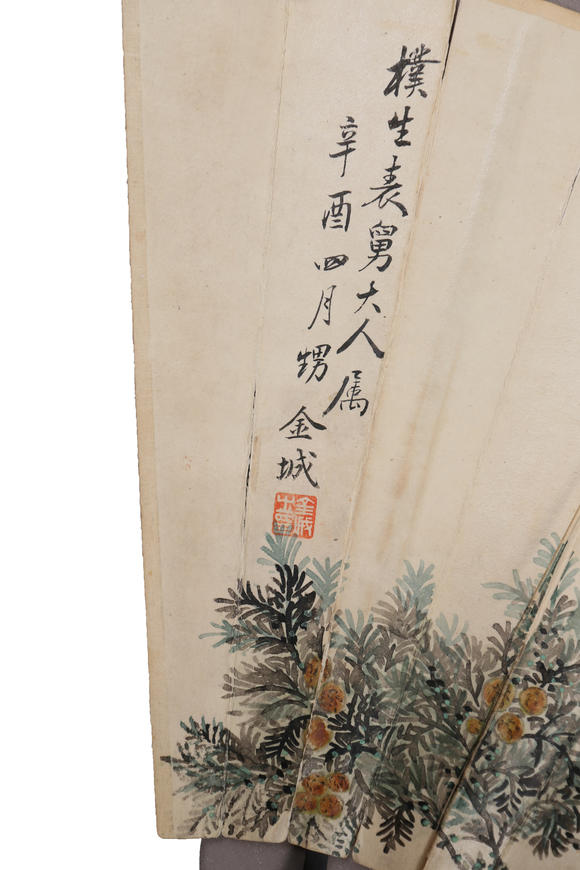 樸生表舅大人属
辛酉四月甥金城
金城之画